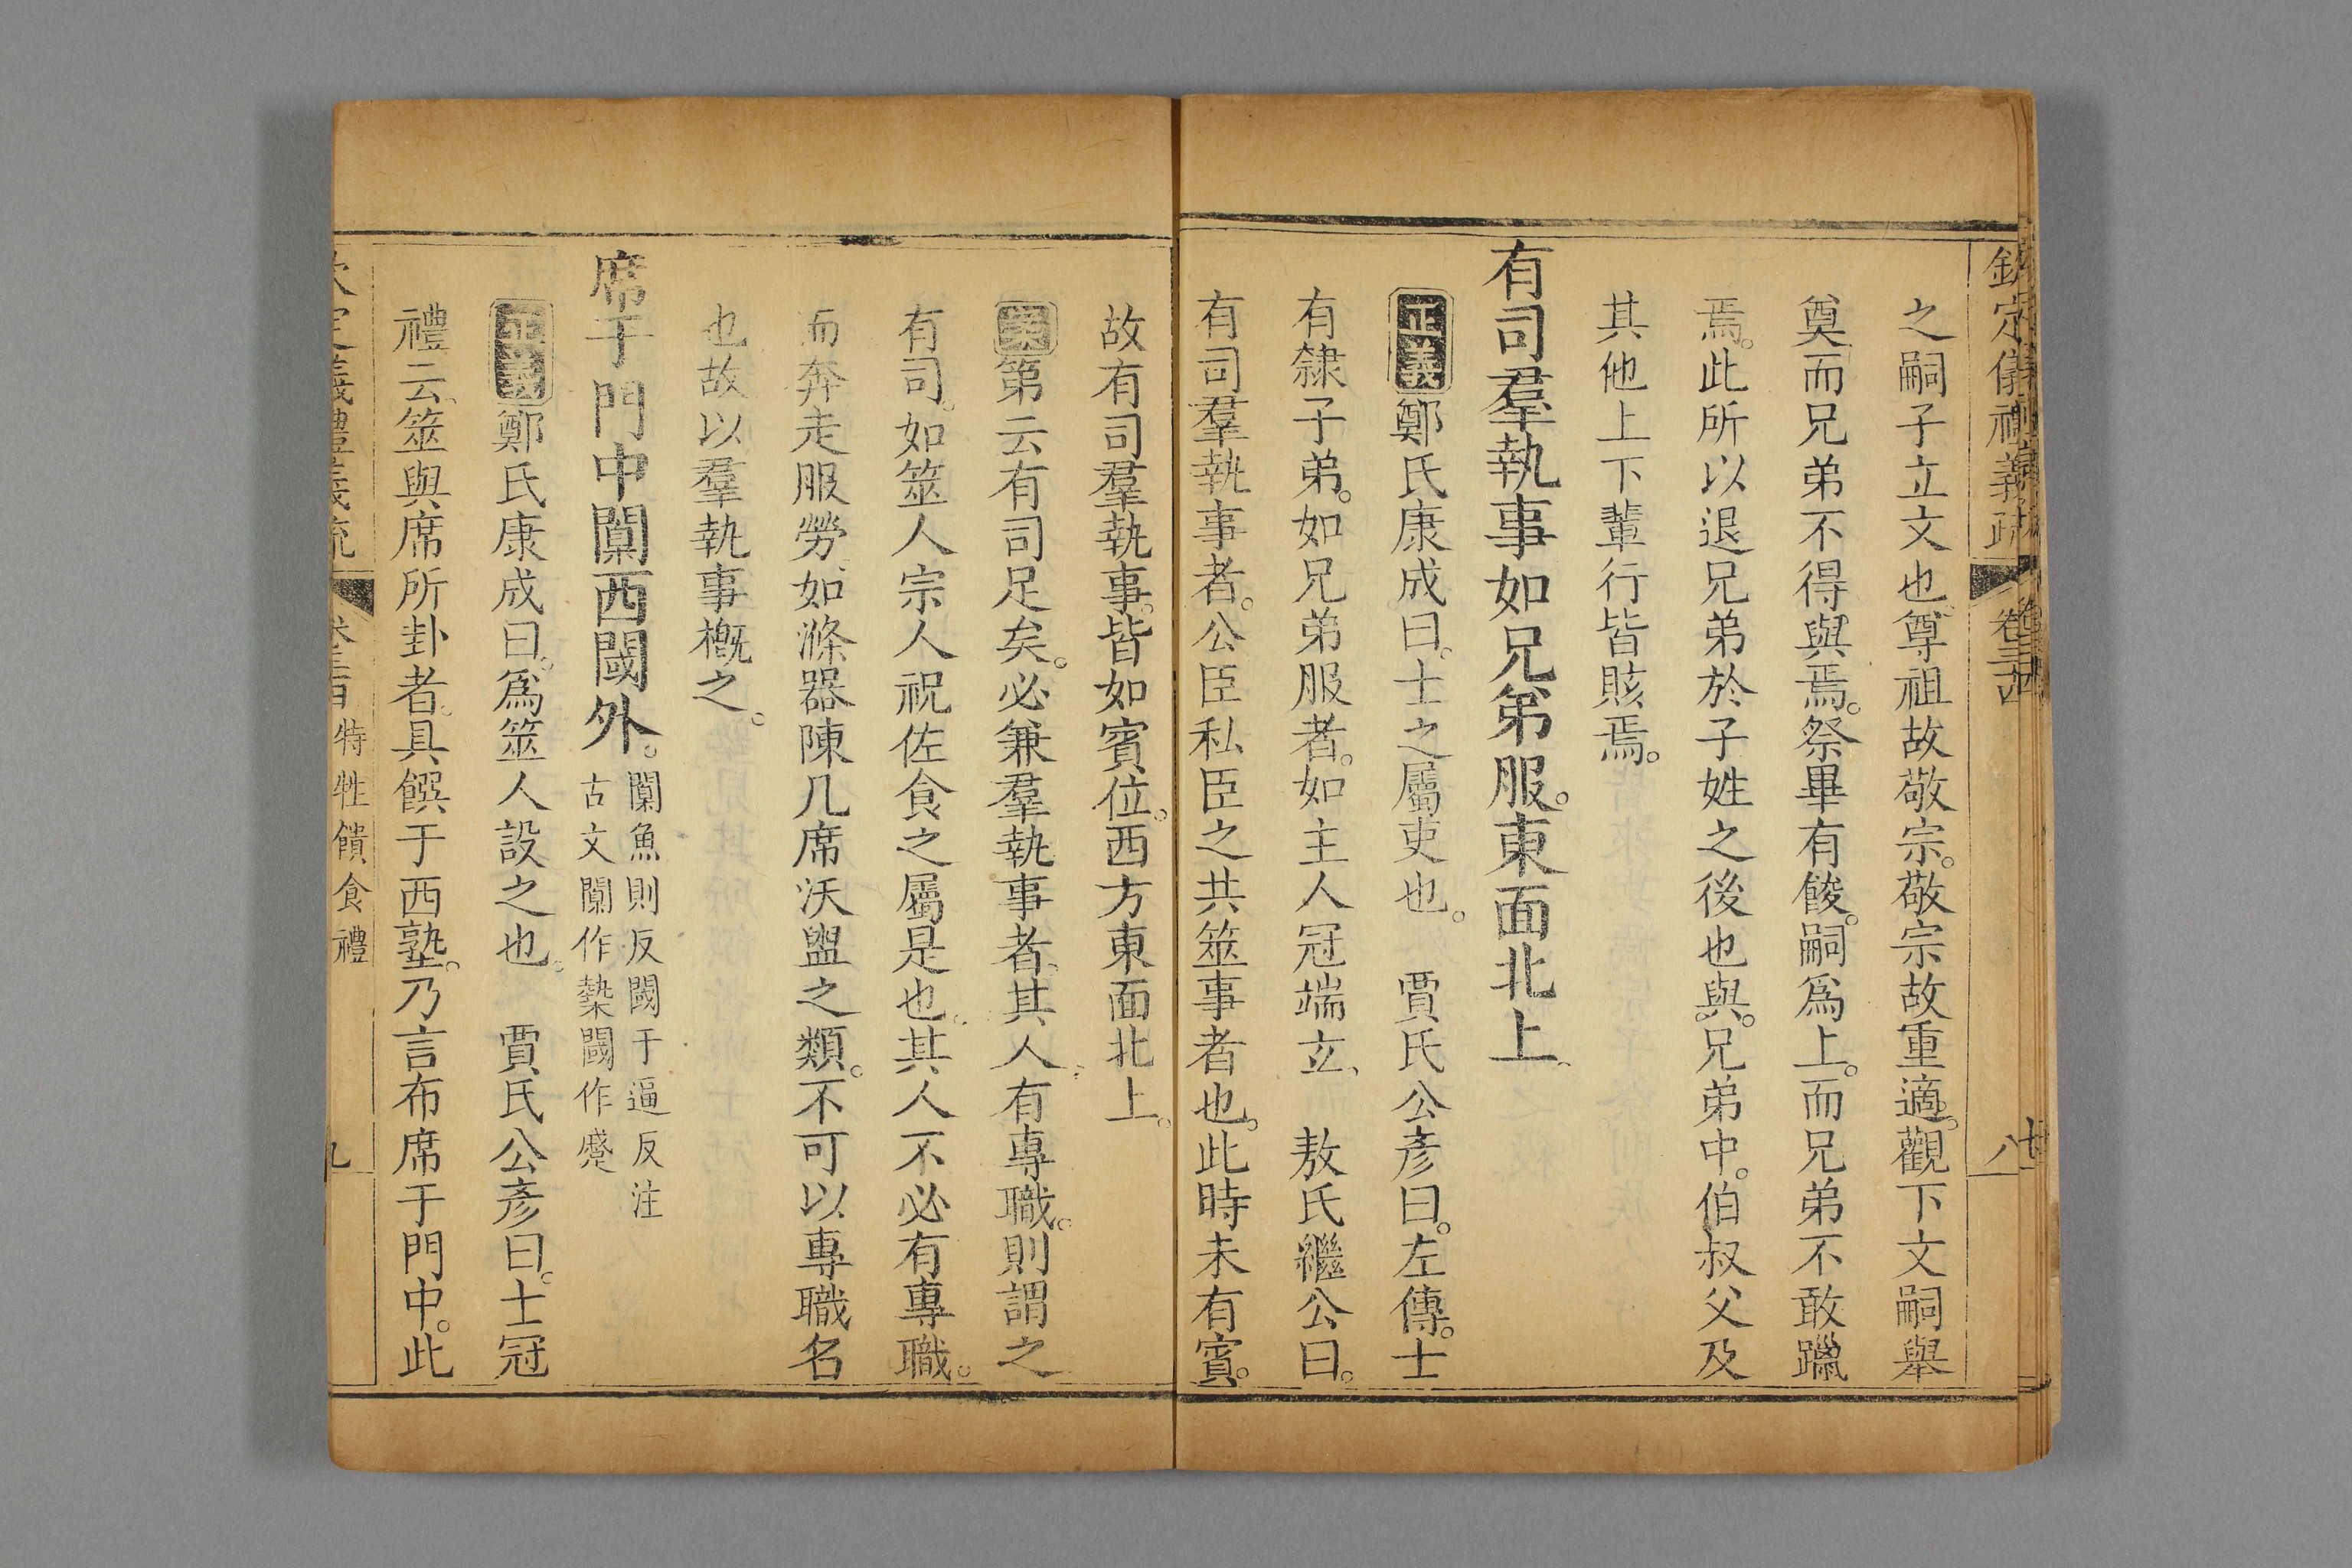 欽定儀禮義疏 卷三十四 八
之嗣子立文也尊祖故敬宗。敬宗故重適。觀下文嗣舉
奠而兄弟不得與焉。祭畢有餕。嗣爲上。而兄弟不敢躐
焉。此所以退兄弟於子姓之後也與。兄弟中。伯叔父及
其他上下輩行皆賅焉。
有司羣執事如兄弟服。東面北上。
正義鄭氏康成曰。士之屬吏也。 賈氏公彥曰。左傳。士
有隸子弟。如兄弟服者。如主人冠端玄、 敖氏繼公曰。
有司羣執事者。公臣私臣之共筮事者也。此時未有賓。
故有司羣執事。皆如賓位。西方東面北上。
案第云有司足矣。必兼羣執事者。其人有專職。則謂之
有司。如筮人宗人祝佐食之屬是也。其人不必有專職。
而奔走服勞、如滌器陳几席沃盥之類。不可以專職名
也故以羣執事槪之。
席于門中闑西閾外。闑魚則反閾于逼反注
古文闑作槷閾作蹙
正義鄭氏康成曰。爲筮人設之也。 賈氏公彥曰。士冠
禮云、筮與席所卦者。具饌于西塾。乃言布席于門中。此
欽定儀禮義疏 特牲饋食禮 九